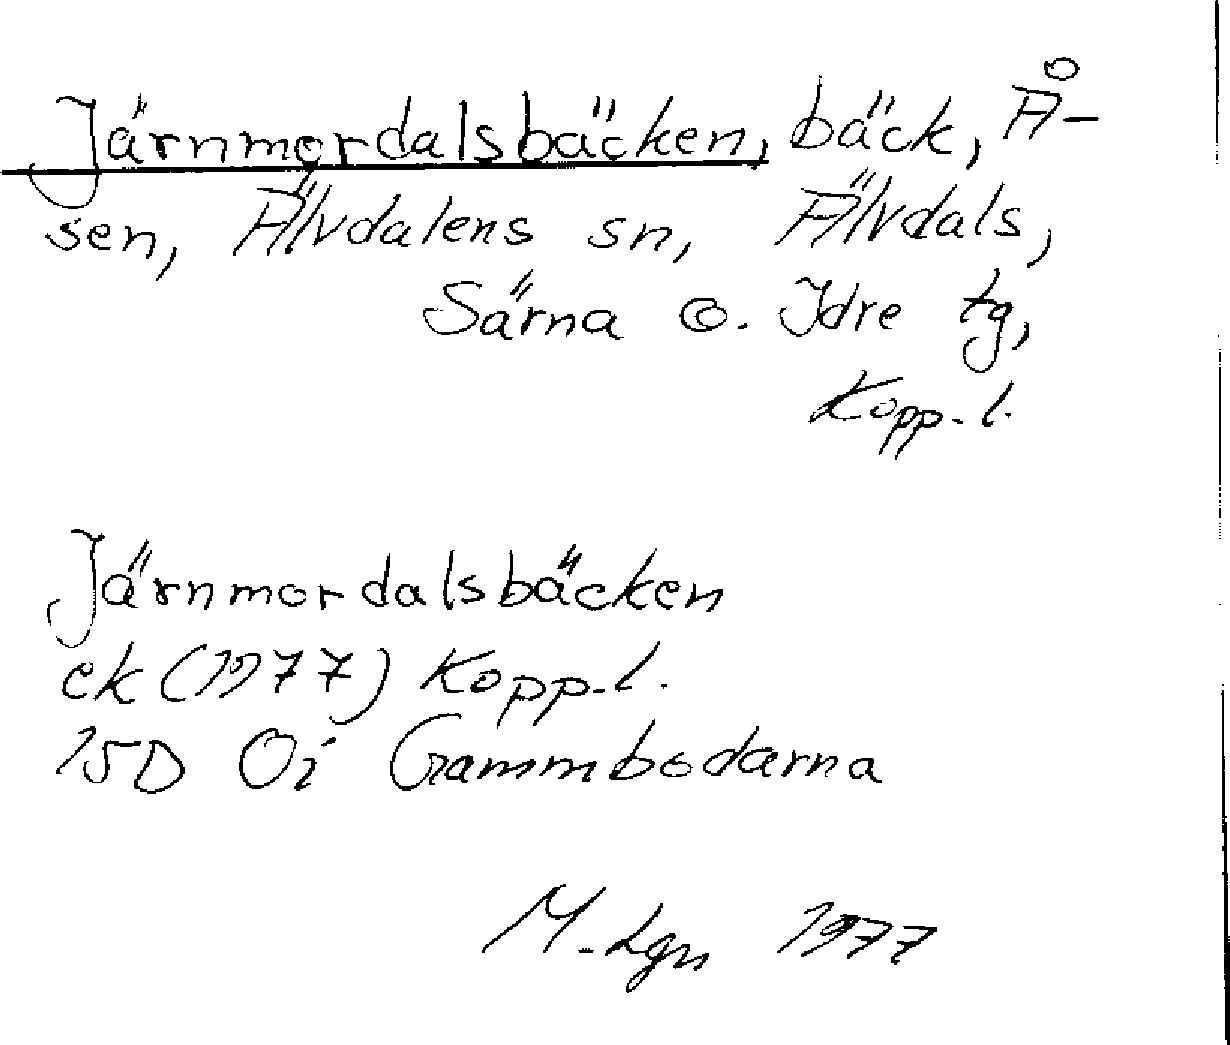 Järnmordalsbäcken, bäck, Å-
sen, Älvdalens sn, Älvdals,
Särna o. Idre tg,
Kopp. l.
Järnmordalsbäcken
ek (1977) Kopp. l.
15D Oi Gammbodarna
M. Lgn 1977